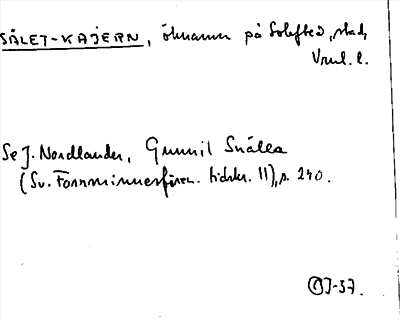 SÅLET-KAJERN, öknamn på Sollefteå, stad,
Vml. l.
Se J. Nordlander, Gunnil Snälla
(Sv. Fornminnesfören. tidskr. 11), s. 240.
J-37.